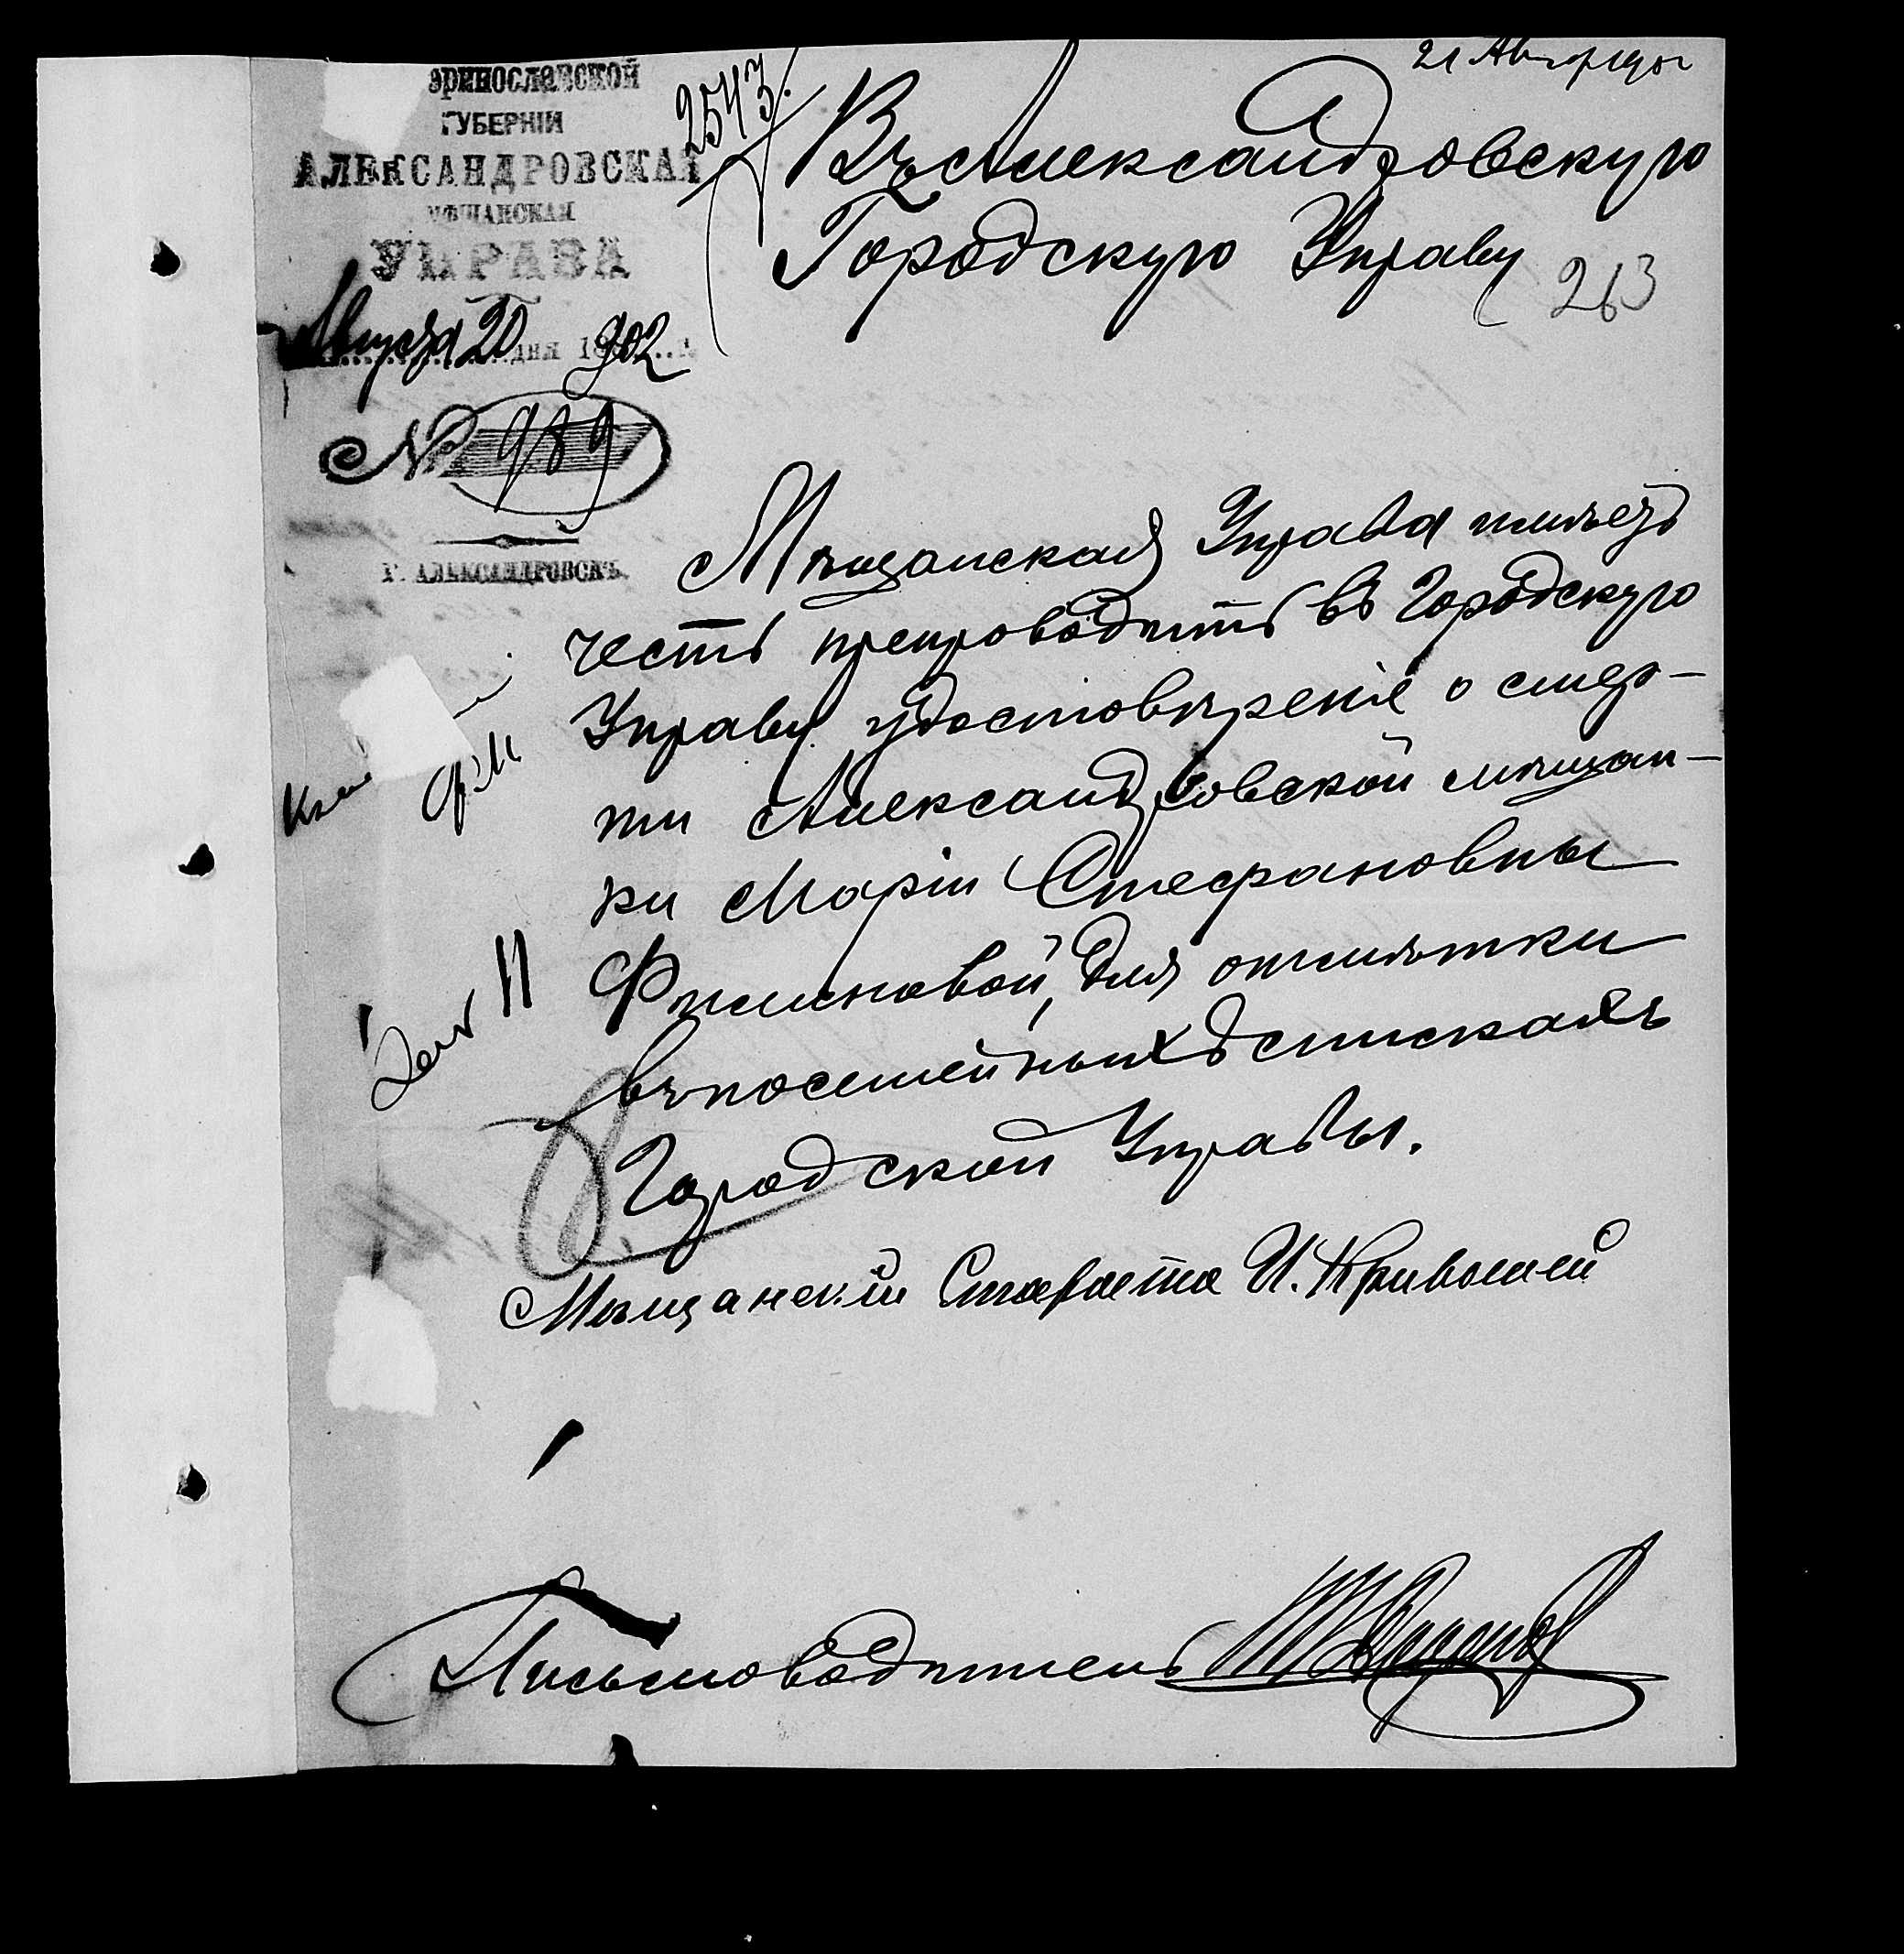 21 Авг
2543
еринославской
ГУБЕРНІИ
АЛЕКСАНДРОВСКАЯ
МѢЩАНСКАЯ
УПРАВА
Августа 20 дня 1902
№ 989
Г. АЛЕКСАНДРОВСКЪ.
Въ Александровскую
Городскую Управу
263
Мѣщанская Управа имѣетъ
честь препроводить въ Городскую
Управу удостовѣреніе о смер-
ти Александровской мѣщан-
ки Маріи Стефановны
Филиновой, для отмѣтки
въ посемейныхъ спискахъ
Городской Управы.
Мѣщанскій Староста И. Кривошей
Письмоводитель